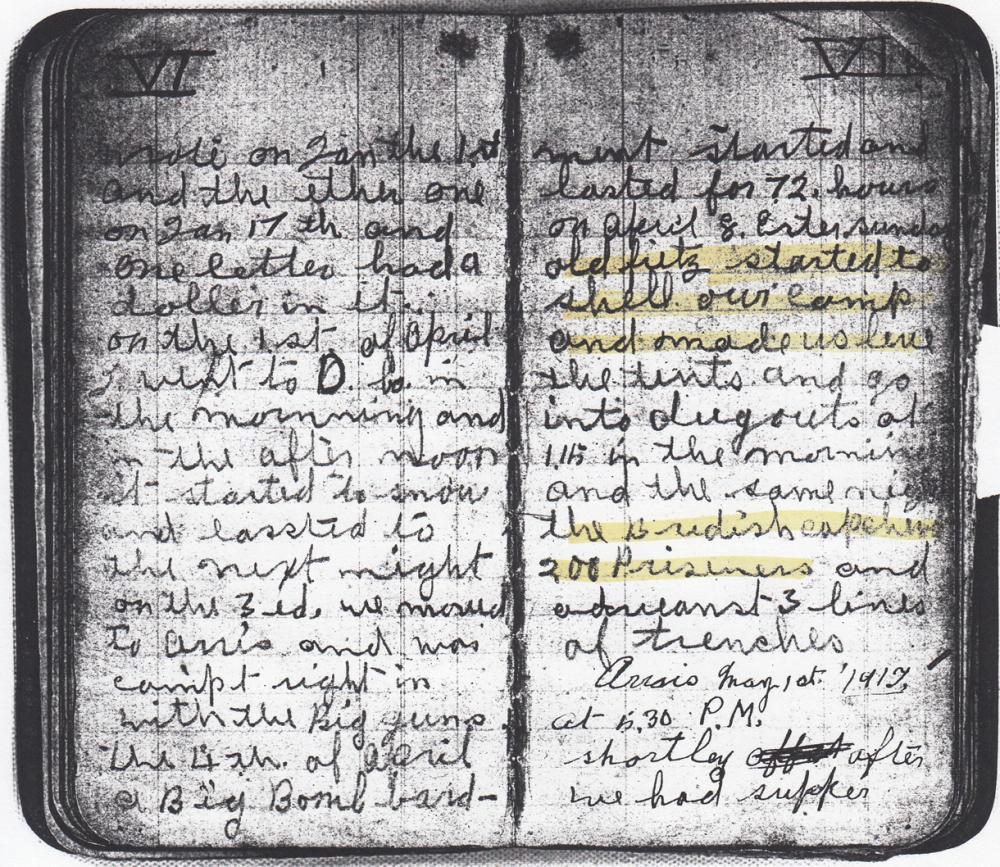 VI
wrote on Jan the 1st
and the other one
on Jan 17th and
one letter had a
doller in it.
on the 1st of April
I went to D. in
the mornning and
in the after noon
it started to snow
and lassted to
the next night
on the 3ed, we moved
to arris and was
campt right in
with the Big guns.
the 4th. of April
a Big Bomb bard-
VII
ment started and
lasted for 72. hours
on April 8. Ester sunda
old fritz started to
shell our camp
and made us leve
the tents and go
into dugouts at
1.15 in the mornin
and the same nig
the
200 Prisiners and
3 lines
of trenches
Arris May 1st. 1917,
at 5.30 P.M.
shortley after
we had supper